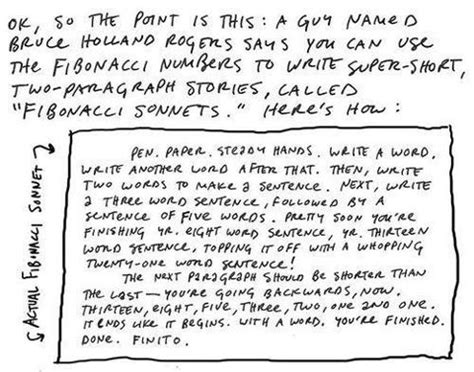 OK, SO THE POINT IS THIS: A GUY NAMED
BRUCE HOLLAND ROGERS SAYS YOU CAN USE
THE FIBONACCI NUMBERS TO WRITE SUPER-SHORT,
TWO-PARAGRAPH STORIES, CALLED
"FIBONACCI SONNETS." HERE'S HOW:
ACTUAL FIBONACCI SONNET
PEN. PAPER. STEADY HANDS. WRITE A WORD.
WRITE ANOTHER WORD AFTER THAT. THEN, WRITE
TWO WORDS TO MAKE A SENTENCE. NEXT, WRITE
A THREE WORD SENTENCE, FOLLOWED BY A
SENTENCE OF FIVE WORDS. PRETTY SOON YOU'RE
FINISHING YR. EIGHT WORD SENTENCE, YR. THIRTEEN
WORD SENTENCE, TOPPING IT OFF WITH A WHOPPING
TWENTY-ONE WORD SENTENCE!
THE NEXT PARAGRAPH SHOULD BE SHORTER THAN
THE LAST—YOU'RE GOING BACKWARDS, NOW.
THIRTEEN, EIGHT, FIVE, THREE, TWO, ONE AND ONE.
IT ENDS LIKE IT BEGINS. WITH A WORD. YOU'RE FINISHED.
DONE. FINITO.